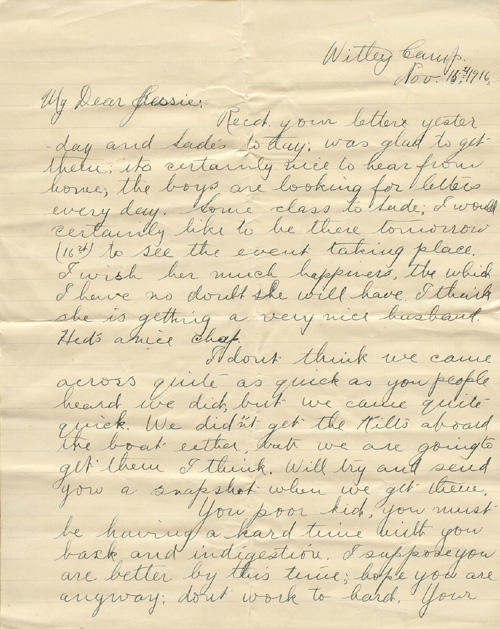 Witley Camp.
Nov. 15th/1916.
My Dear Jessie:
Recd. your letter yester
-day and Sade's today; was glad to get
them; its certainly nice to hear from
home; the boys are looking for letters
every day. Some class to Sade; I would
certainly like to be there tomorrow
(16th) to see the event taking place.
I wish her much happiness, the which
I have no doubt she will have. I think
she is getting a very nice husband.
Hed's a nice chap.
I dont think we came
across quite as quick as you people
heard we did, but we came quite
quick. We didn't get the Kilts aboard
the boat either, but we are going to
get them I think. Will try and send
you a snapshot when we get them.
You poor kid, you must
be having a hard time with you
back and indigestion. I suppose you
are better by this time; hope you are
anyway; dont work to hard. Your